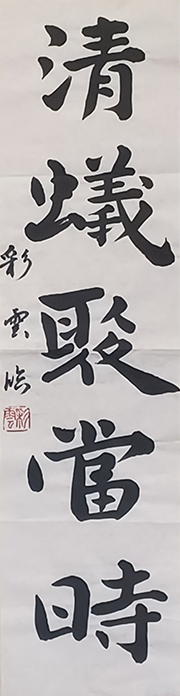 清蟻聚當時
彩雲臨
彩雲